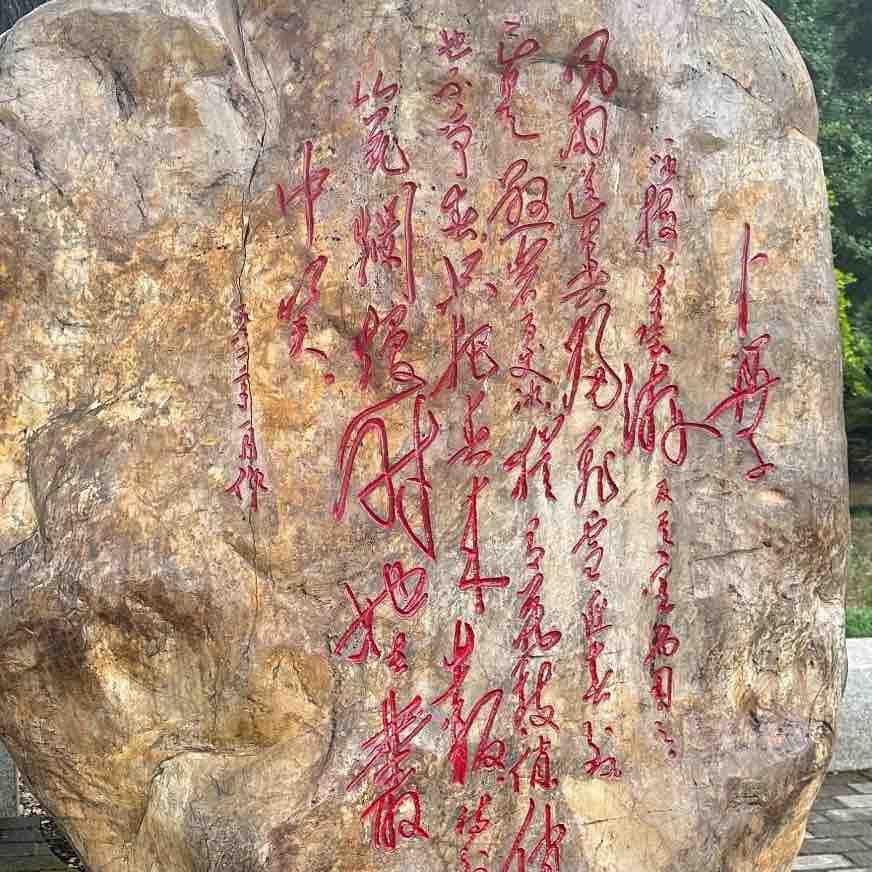 卜算子
咏梅 陆游 反其意而用之
风雨送春归飞雪迎春到
已是悬岩百丈冰犹有花枝俏俏
也不争春只把春来报待到
山花烂熳时她在丛
中笑
月作